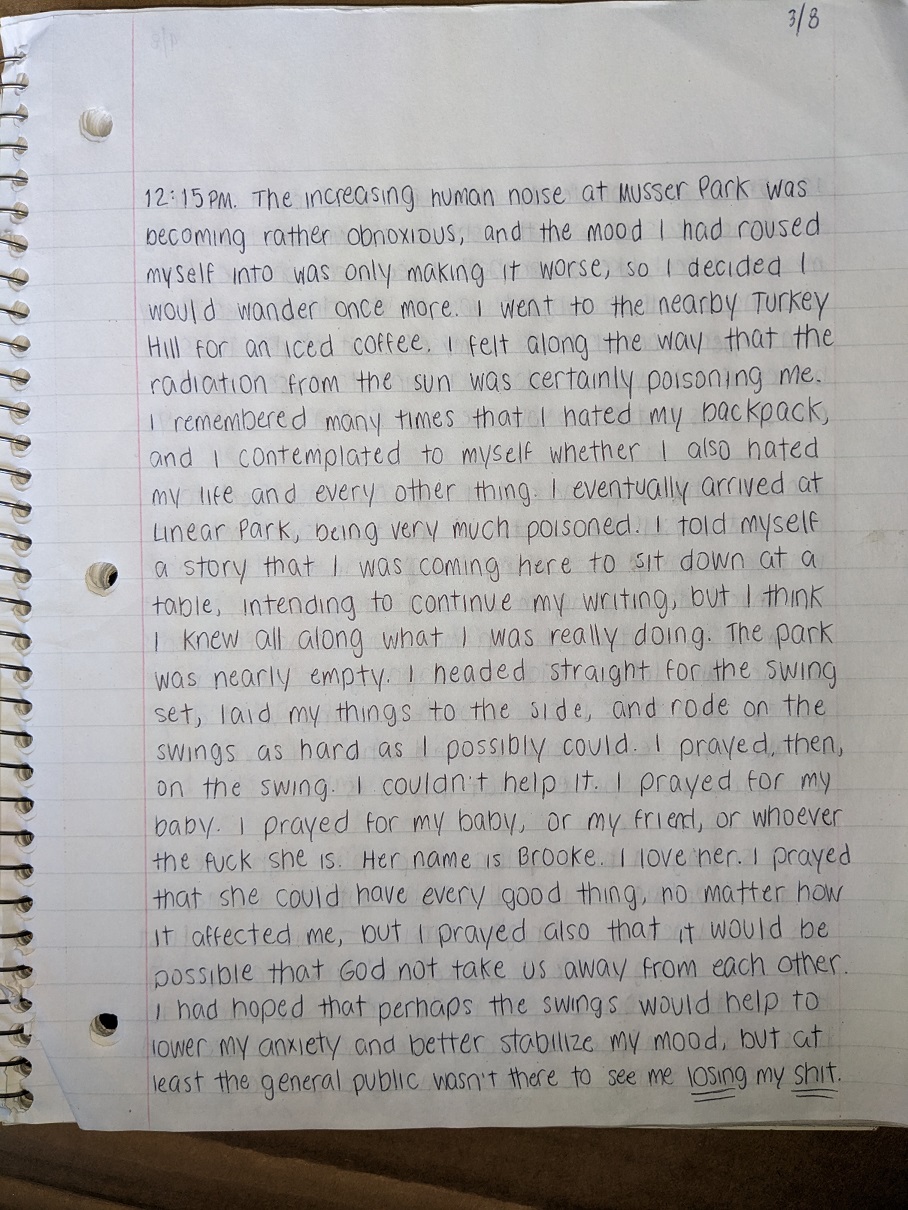 3/8
12:15PM. The increasing human noise at Musser Park was
becoming rather obnoxious, and the mood I had roused
myself into was only making it worse, so I decided I
would wander once more. I went to the nearby Turkey
Hill for an iced coffee. I felt along the way that the
radiation from the sun was certainly poisoning me.
I remembered many times that I hated my backpack,
and I contemplated to myself whether I also hated
my life and every other thing. I eventually arrived at
Linear Park, being very much poisoned. I told myself
a story that I was coming here to sit down at a
table, intending to continue my writing, but I think
I knew all along what I was really doing. The park
was nearly empty. I headed straight for the swing
set, laid my things to the side, and rode on the
swings as hard as I possibly could. I prayed, then,
on the swing. I couldn't help it. I prayed for my
baby. I prayed for my baby, or my friend, or whoever
the fuck she is. Her name is Brooke. I love her. I prayed
that she could have every good thing, no matter how
it affected me, but I prayed also that it would be
possible that God not take us away from each other.
I had hoped that perhaps the swings would help to
lower my anxiety and better stabilize my mood, but at
least the general public wasn't there to see me losing my shit.